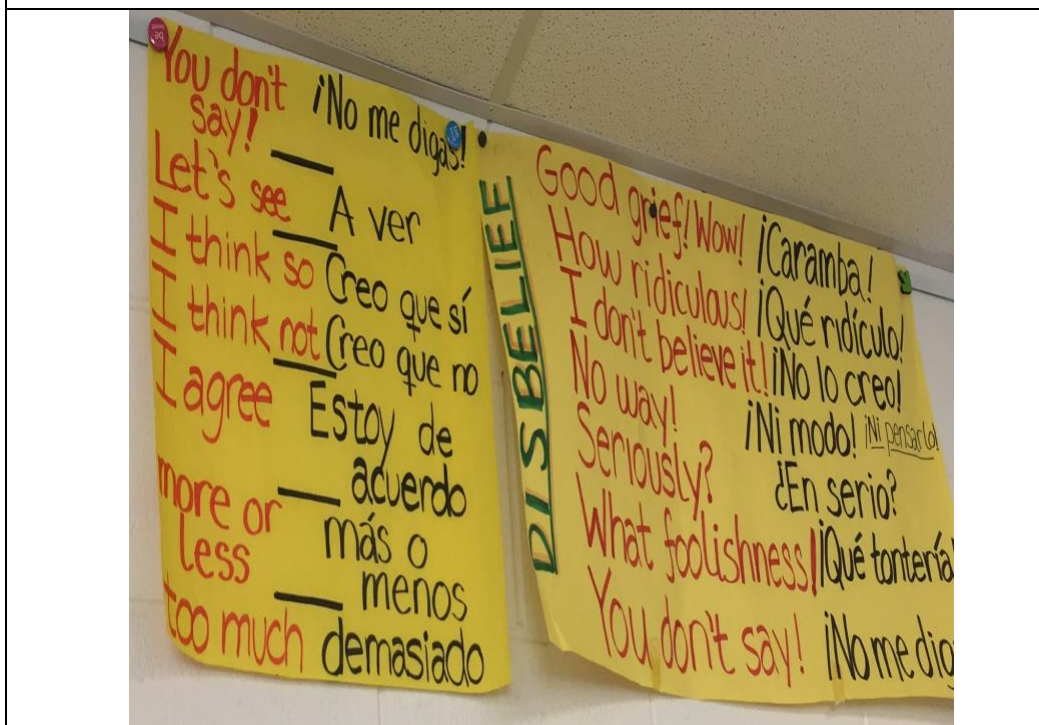 You don't say! ¡No me digas!
Let's see A ver
I think so Creo que sí
I think not Creo que no
I agree Estoy de acuerdo
more or less más o menos
too much demasiado
DISBELIEF
Good grief! Wow! ¡Caramba!
How ridiculous! ¡Qué ridículo!
I don't believe it! ¡No lo creo!
No way! ¡Ni modo! ¡Ni pensarlo!
Seriously? ¿En serio?
What foolishness! ¡Qué tontería!
You don't say! ¡No me dig